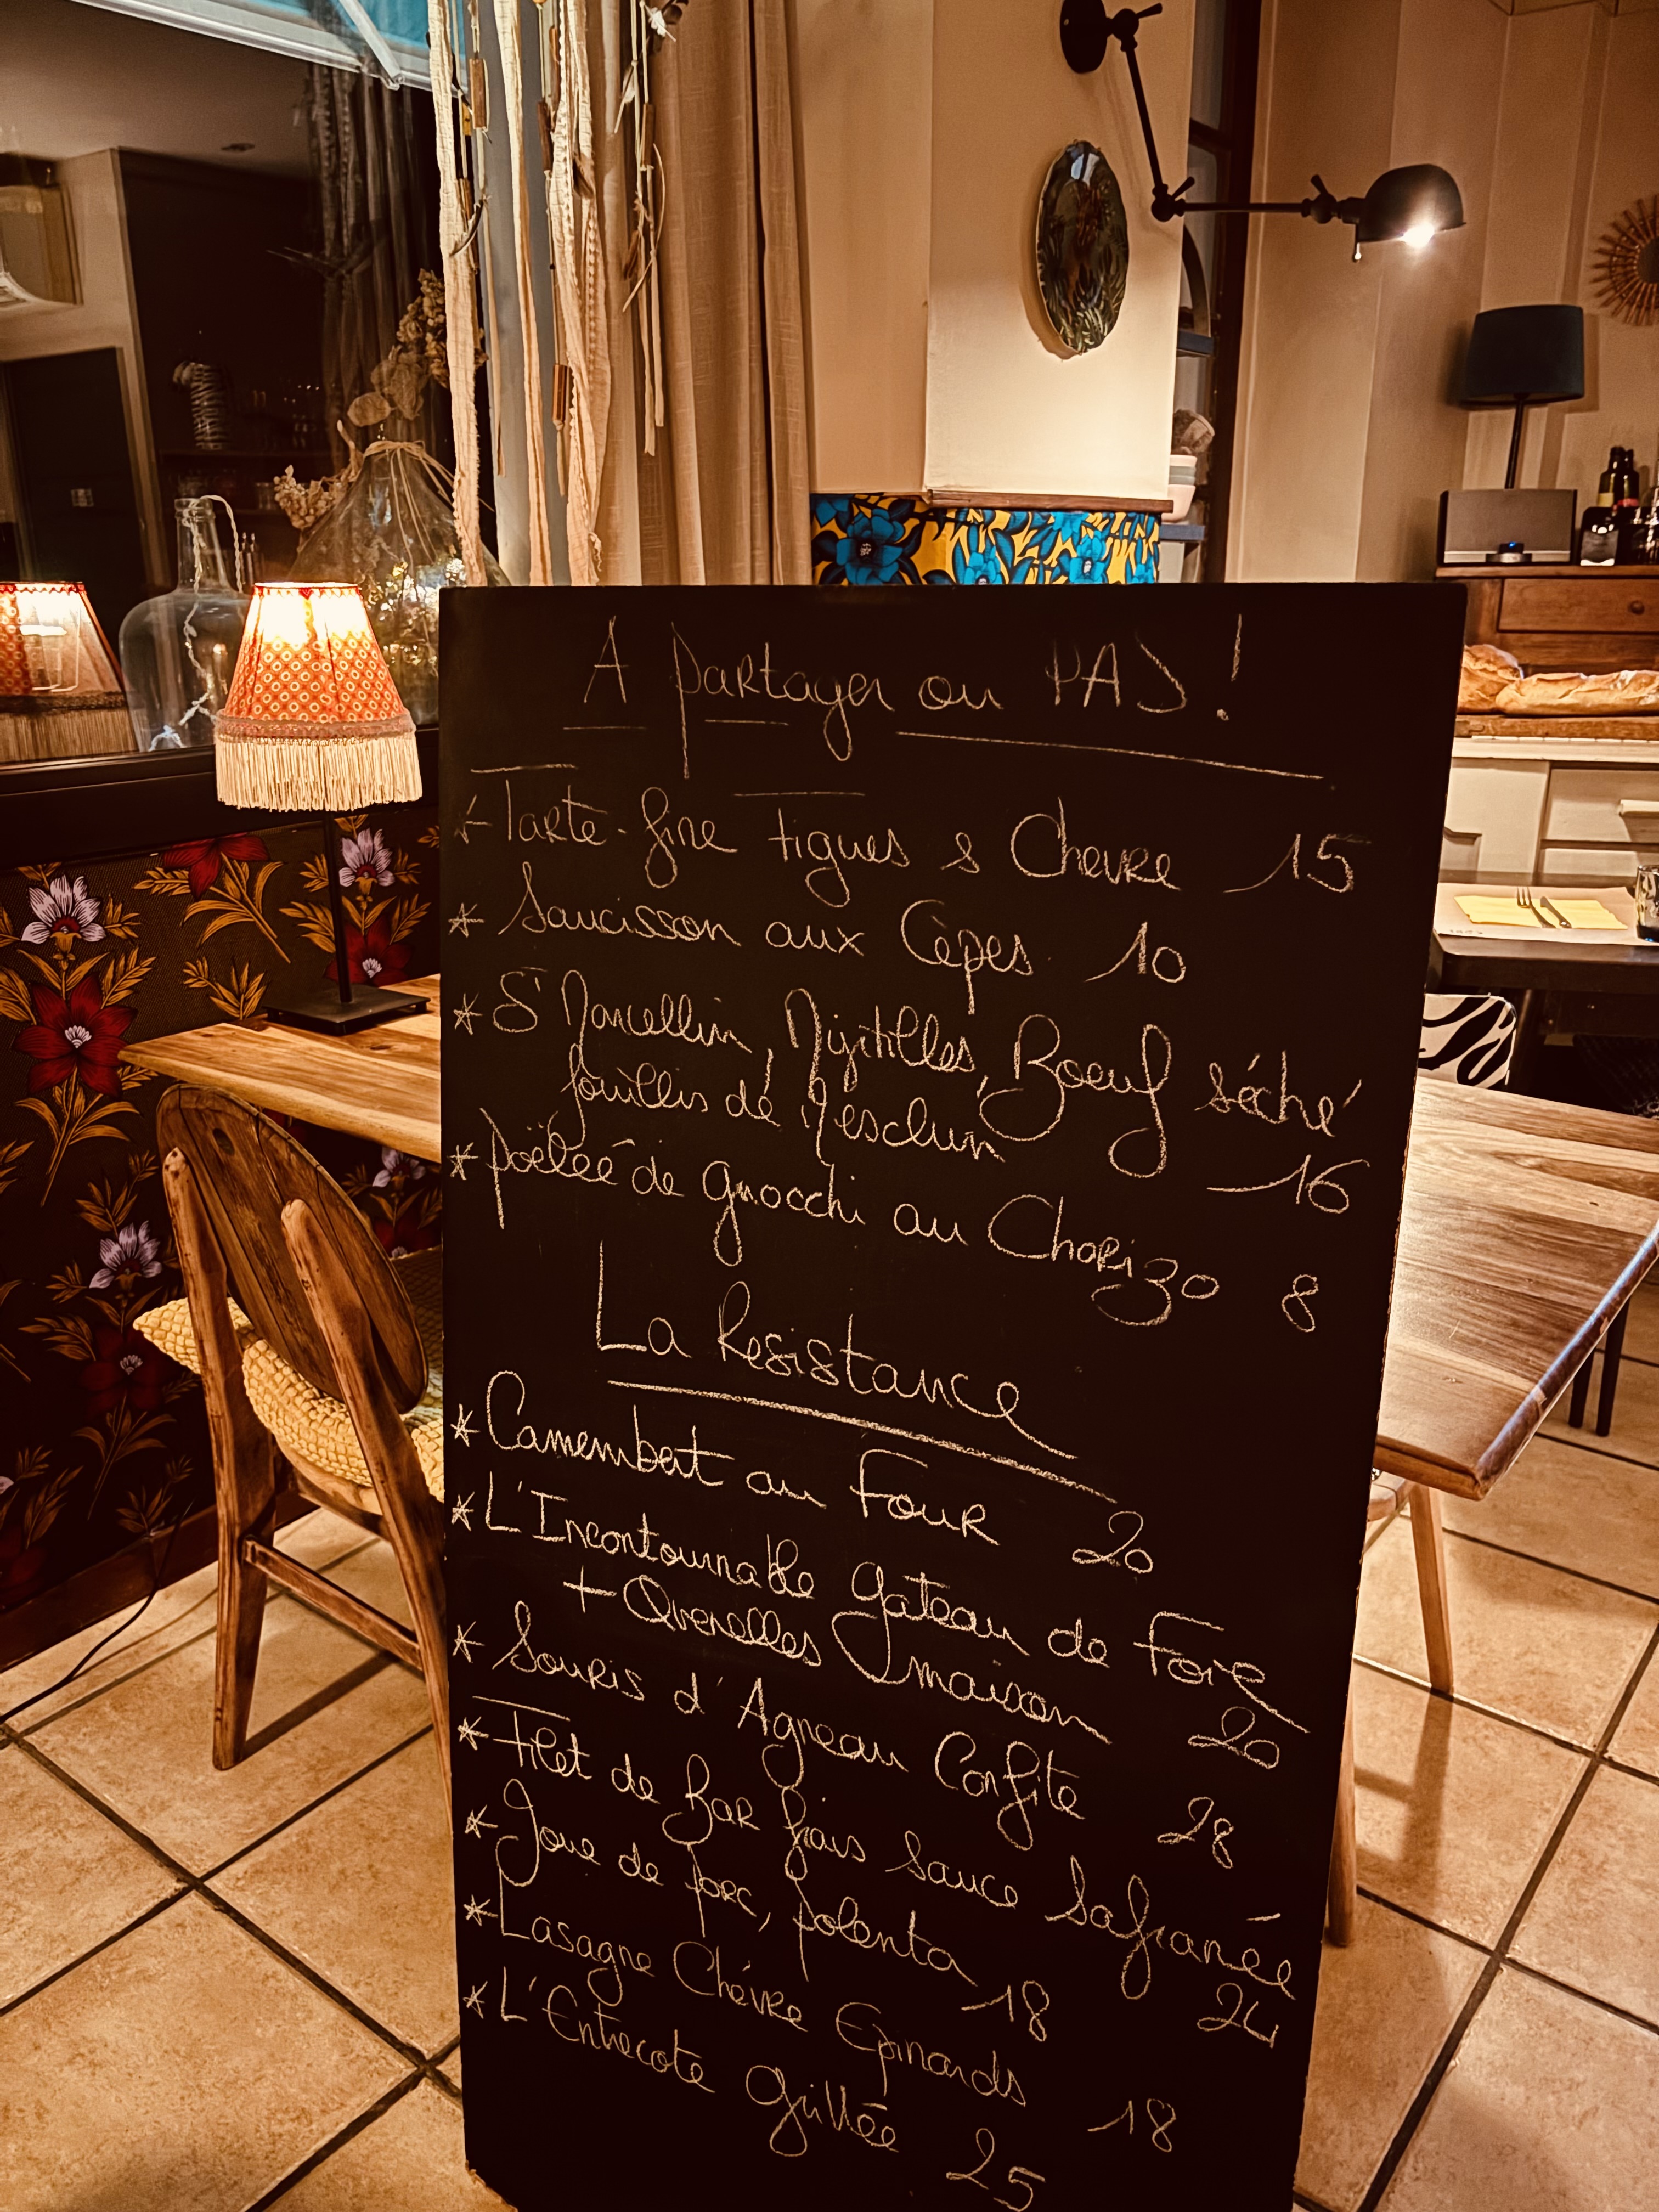 A partager ou PAS !
* Tarte fine figues & Chevre 15
* Saucisson aux Cèpes 10
* St Marcellin, Myrtilles, Boeuf séché
fouillis de Mesclun 16
* poëlée de gnocchi au Chorizo 8
La Resistance
* Camembert au Four 20
* L'Incontournable gateau de Foie
+ Quenelles maison 20
* Souris d'Agneau Confite 28
* Filet de Bar frais sauce Safranée 24
* Joue de porc, polenta 18
* Lasagne Chèvre Epinards 18
* L'Entrecote grillée 25